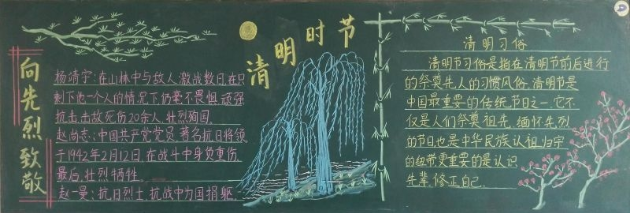 向先烈致敬
杨靖宇:在山林中与敌人激战数日,在只
剩下他一个人的情况下仍毫不畏惧,顽强
抗击击敌死伤20余人,壮烈殉国。
赵尚志:中国共产党党员,著名抗日将领
于1942年2月12日,在战斗中身负重伤,
最后,壮烈牺牲。
赵一曼:抗日烈士,抗战中为国捐躯。
清明时节
清明习俗
清明节习俗是指在清明节前后进行
的祭奠先人的习惯风俗,清明节是
中国最重要的传统节日之一,它不
仅是人们祭奠祖先,缅怀先烈
的节日,也是中华民族认祖归宗
的纽带,更重要的是认识
先辈,修正自己.